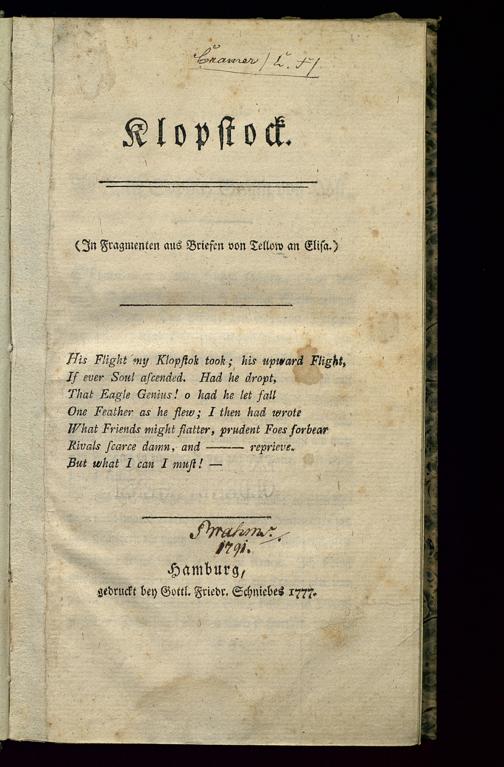 Cramer / C. F /
Klopſtock.
(In Fragmenten aus Briefen von Tellow an Eliſa.)
His Flight my Klopſtok took; his upward Flight,
If ever Soul aſcended. Had he dropt,
That Eagle Genius! o had he let fall
One Feather as he flew; I then had wrote
What Friends might flatter, prudent Foes forbear
Rivals ſcarce damn, and ——— reprieve.
But what I can I muſt! —
1791.
Hamburg,
gedruckt bey Gottl. Friedr. Schniebes 1777.